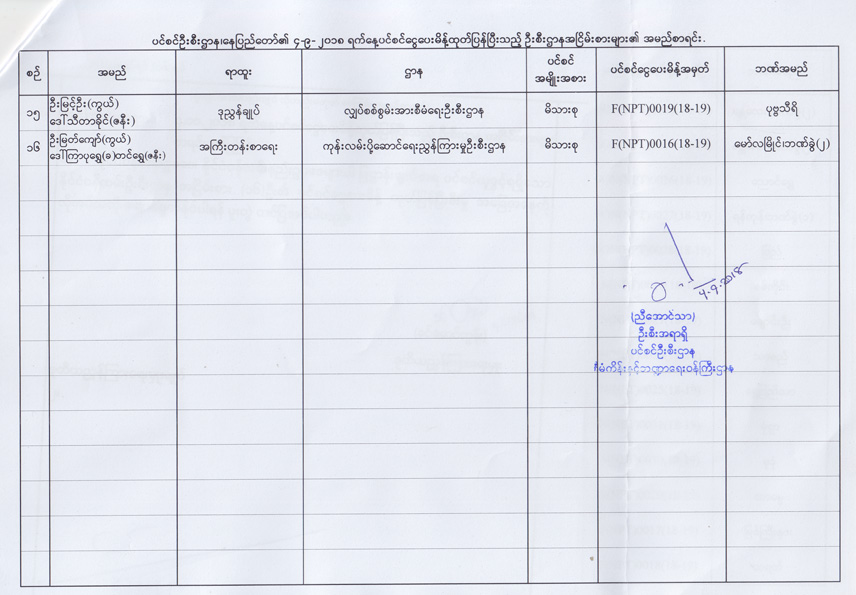 ပင်စင်ဦးစီးဌာန၊နေပြည်တော်၏ ၄-၉-၂၀၁၈ ရက်နေ့ပင်စင်ငွေပေးမိန့်ထုတ်ပြန်ပြီးသည့် ဦးစီးဌာနအငြိမ်းစားများ၏ အမည်စာရင်း.
စဉ် အမည် ရာထူး ဌာန ပင်စင် အမျိုးအစား ပင်စင်ငွေပေးမိန့်အမှတ် ဘဏ်အမည်
၁၅ ဦးမြင့်ဦး(ကွယ်) ဒေါ်သီတာခိုင်(ဇနီး) ဒုညွှန်ချုပ် လျှပ်စစ်စွမ်းအားစီမံရေးဦးစီးဌာန မိသားစု F(NPT)0019(18-19) ပုဗ္ဗသီရိ
၁၆ ဦးမြတ်ကျော်(ကွယ်) ဒေါ်ကြာပုရွှေ(ခ)တင်ရွှေ(ဇနီး) အကြီးတန်းစာရေး ကုန်းလမ်းပို့ဆောင်ရေးညွှန်ကြားမှုဦးစီးဌာန မိသားစု F(NPT)0016(18-19) မော်လမြိုင်ဘဏ်ခွဲ(၂)
၄-၉-၂၀၁၈
(ညီအောင်သာ)
ဦးစီးအရာရှိ
ပင်စင်ဦးစီးဌာန
စီမံကိန်းနှင့်ဘဏ္ဍာရေးဝန်ကြီးဌာန